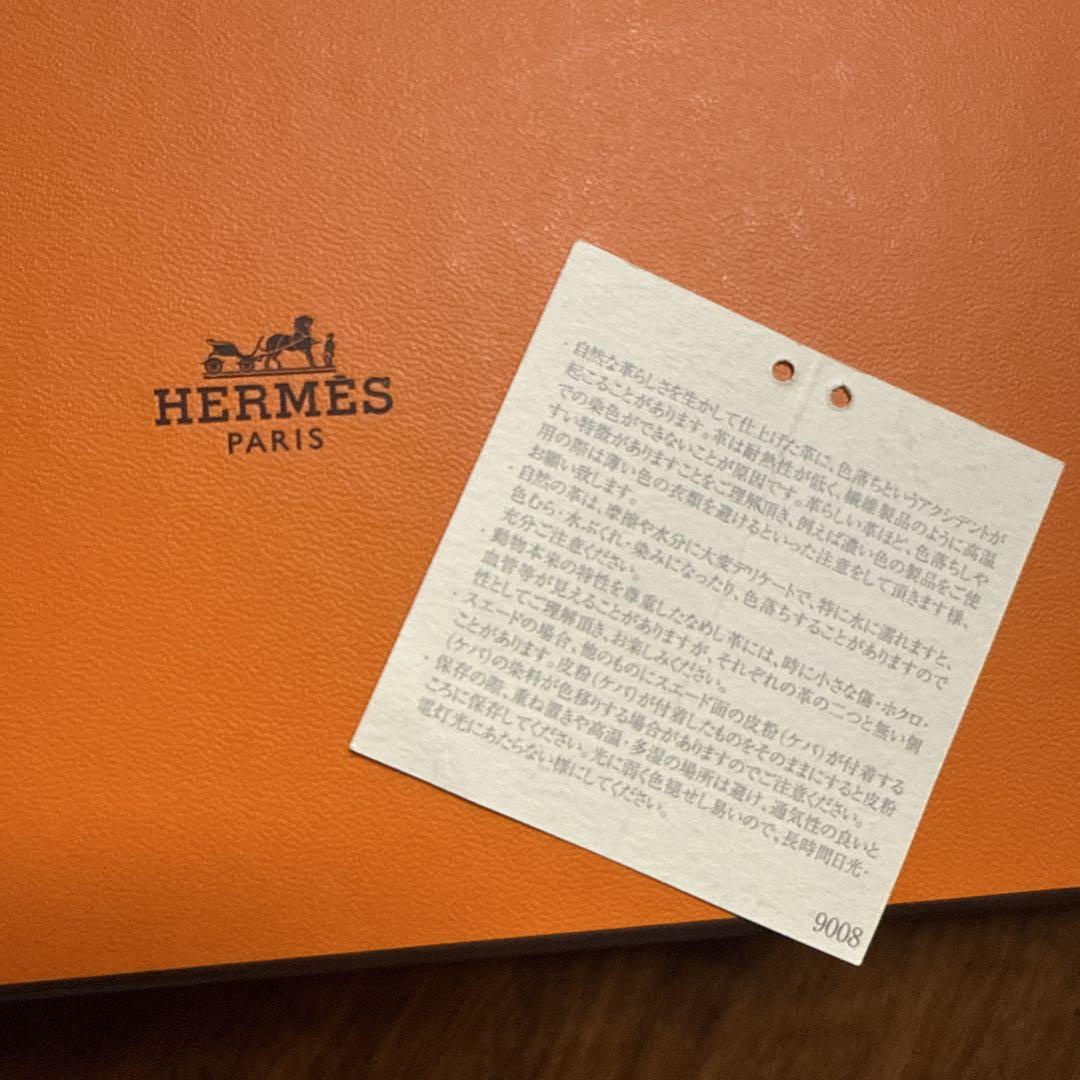 HERMÈS
PARIS
・自然な革らしさを生かして仕上げた革に、色落ちというアクシデントが
起こることがあります。革は耐熱性が低く、繊維製品のように高温
での染色ができないことが原因です。革らしい革ほど、色落ちしや
すい特徴がありますことをご理解頂き、例えば濃い色の製品をご使
用の際は薄い色の衣類を避けるといった注意をして頂きます様、
お願い致します。
・自然の革は、摩擦や水分に大変デリケートで、特に水に濡れますと、
色むら・水ぶくれ・染みになったり、色落ちすることがありますので
充分ご注意ください。
・動物本来の特性を尊重したなめし革には、時に小さな傷・ホクロ・
血管等が見えることがありますが、それぞれの革の二つと無い個
性としてご理解頂き、お楽しみください。
・スエードの場合、他のものにスエード面の皮粉(ケバ)が付着する
ことがあります。皮粉(ケバ)が付着したものをそのままにすると皮粉
(ケバ)の染料が色移りする場合がありますのでご注意ください。
・保存の際、重ね置きや高温・多湿の場所は避け、通気性の良いと
ころに保存してください。光に弱く色褪せし易いので、長時間日光・
電灯光にあたらない様にしてください。
9008